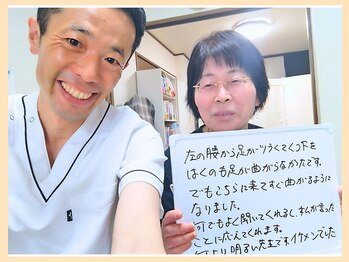 左の腰から足がつらくてくつ下を
はくのも足が曲がらなかたです。
でもこちらに来てすぐ曲がるように
なりました。
何でもよく聞いてくれるし、
ことに応えてくれます。
より明るい先生です。イケメンでした